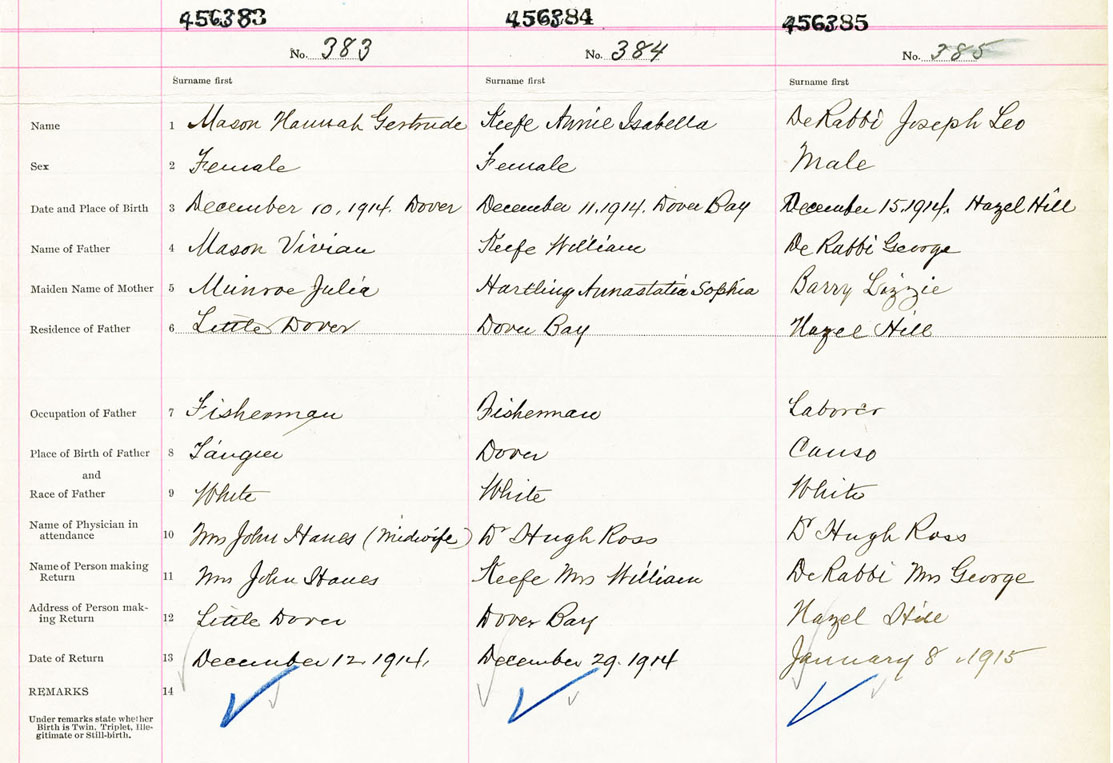 456383 456384 456385
No. 383 No. 384 No. 385
Surname first Surname first Surname first
Name 1 Mason Hannah Gertrude Keefe Annie Isabella DeRabbi Joseph Leo
Sex 2 Female Female Male
Date and Place of Birth 3 December 10, 1914. Dover December 11, 1914. Dover Bay December 15, 1914. Hazel Hill
Name of Father 4 Mason Vivian Keefe William De Rabbi George
Maiden Name of Mother 5 Munroe Julia Hartling Annastatia Sophia Barry Lizzie
Residence of Father 6 Little Dover Dover Bay Hazel Hill
Occupation of Father 7 Fisherman Fisherman Laborer
Place of Birth of Father 8 Tangier Dover Canso
and
Race of Father 9 White White White
Name of Physician in
attendance 10 Mrs John Hanes (Midwife) Dr Hugh Ross Dr Hugh Ross
Name of Person making
Return 11 Mrs John Hanes Keefe Mrs William DeRabbi Mrs George
Address of Person mak-
ing Return 12 Little Dover Dover Bay Hazel Hill
Date of Return 13 December 12, 1914. December 29. 1914 January 8, 1915
REMARKS 14
Under remarks state whether
Birth is Twin, Triplet, Ille-
gitimate or Still-birth.